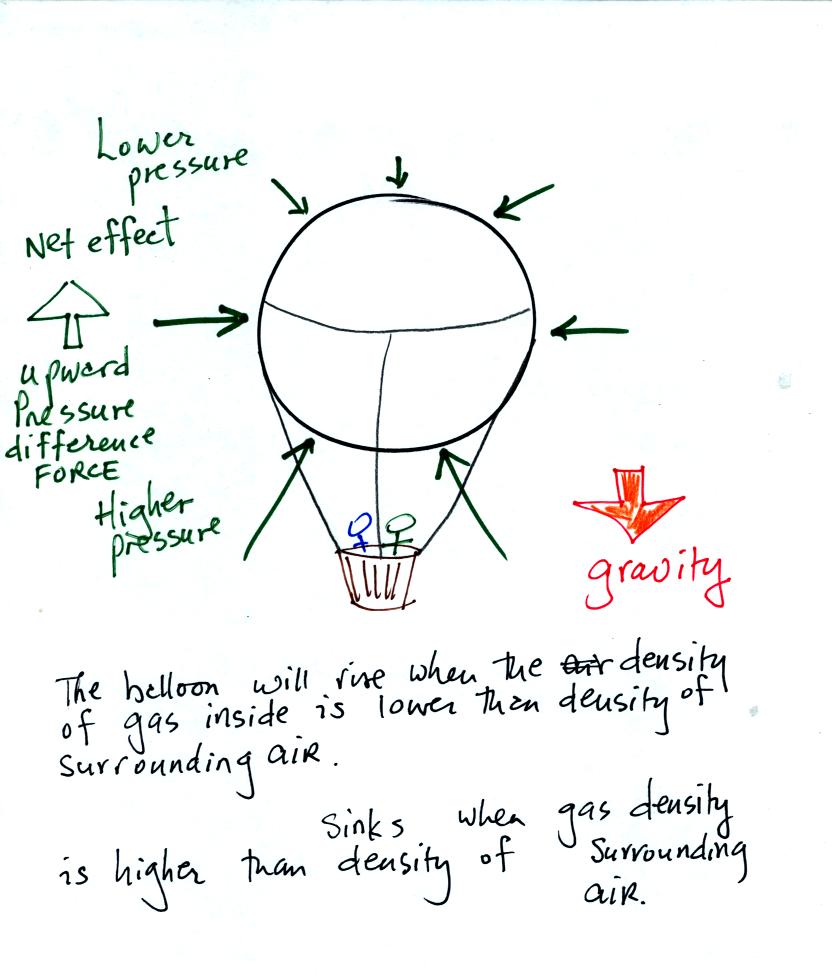 Lower
pressure
Net effect
upward
Pressure
difference
FORCE
Higher
pressure
gravity
The balloon will rise when the air density
of gas inside is lower than density of
surrounding air.
Sinks when gas density
is higher than density of surrounding
air.